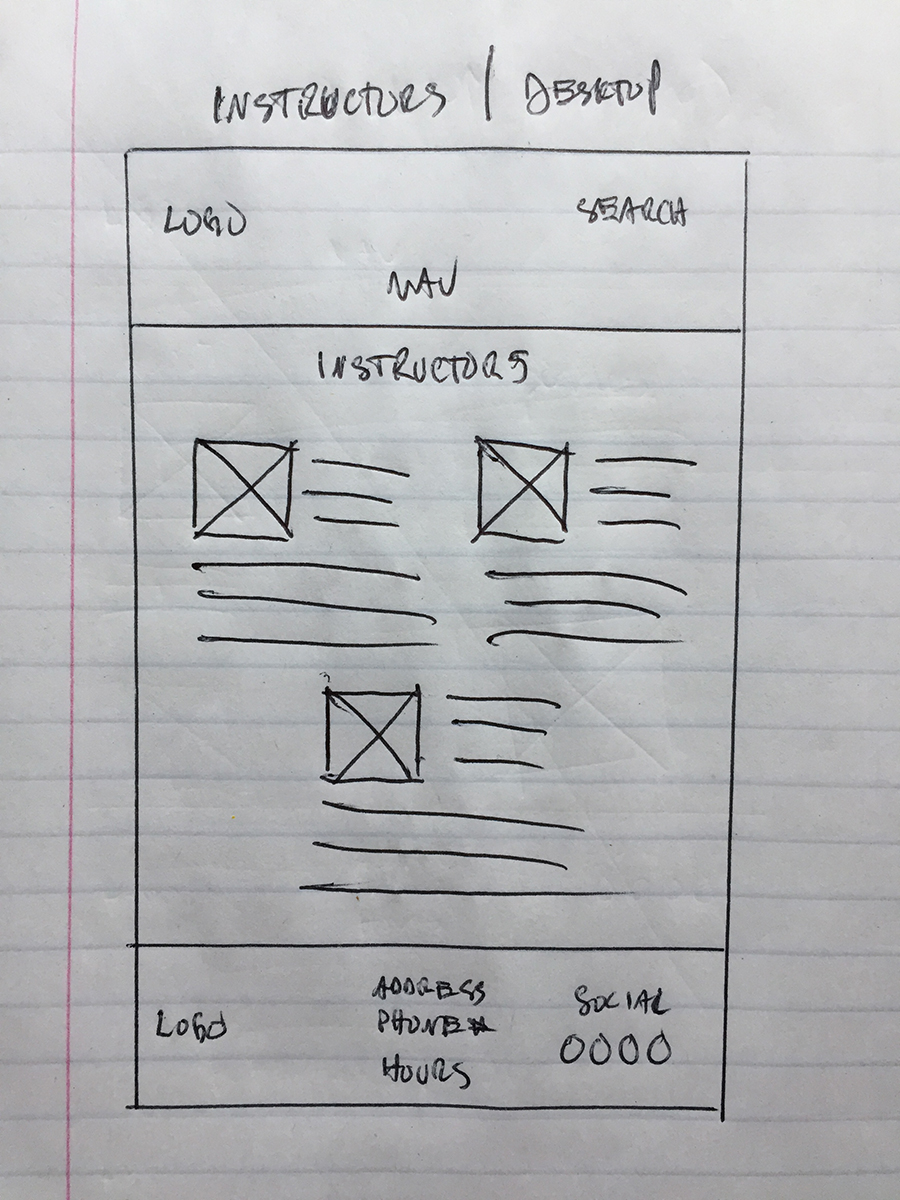 INSTRUCTORS | DESKTOP
LOGO SEARCH
NAV
INSTRUCTORS
ADDRESS
PHONE#
HOURS
LOGO
SOCIAL